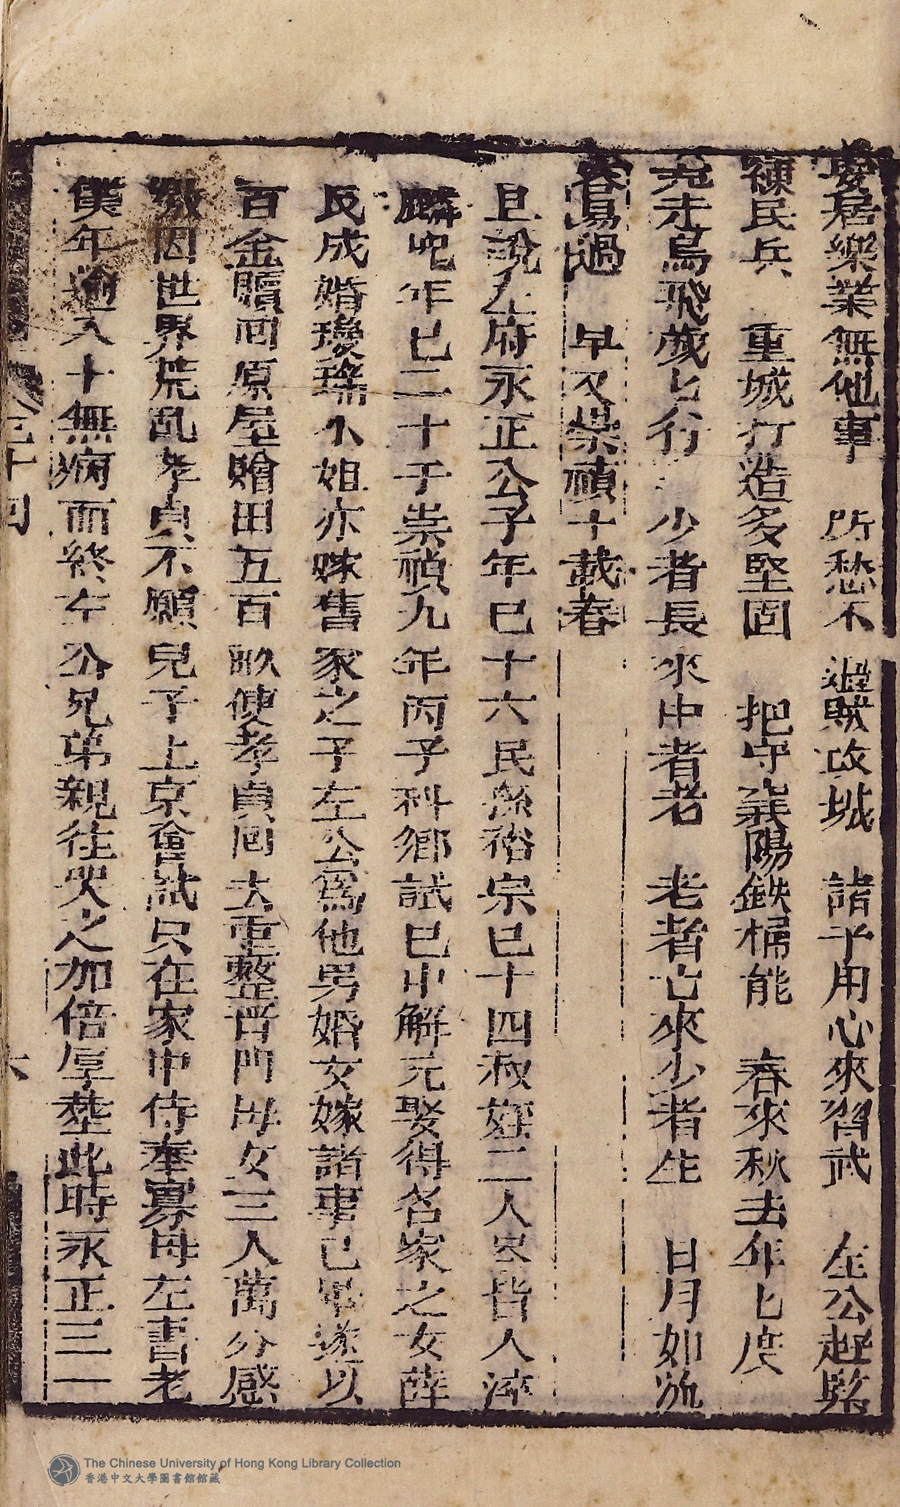 安居樂業無他事　所愁不過賊攻城　諸子用心來習武　左公趕緊
練民兵　重城打造多堅固　把守襄陽鉄桶能　春來秋去年匕度
兎走烏飛歲匕行　少者長來中者老　老者亡來少者生　日月如流
容易過　早又崇禎十載春
且說左府永正公子年已十六民孫裕宗已十四叔姪二人尽皆入泮
麟兒年已二十于崇禎九年丙子科鄉試已中解元娶得名家之女薛
氏成婚瓊瑤小姐亦嫁舊家之子左公爲他男婚女嫁諸事已畢遂以
百金贖囘原屋贈田五百畝使孝貞囘去重整晋門母女三人萬分感
激因世界荒乱孝貞不願兒子上京會試只在家中侍奉寡母左書老
僕年過八十無病而終左公兄弟親往哭之加倍厚塟此時永正三一
三十囘
六
The Chinese University of Hong Kong Library Collection
香港中文大學圖書館館藏